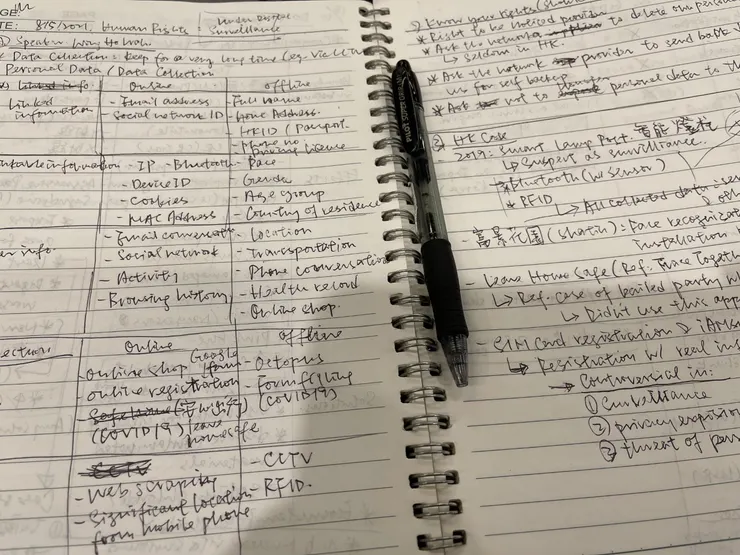 TE: 8/5/2021, Human Rights: Under Digital Surveillance
Data Collection: Keep for a very long time
Personal Data / Data Collection
Online Offline
Linked information
- Email address
- Social network ID
- Full name
- Home Address
- HKID / Passport
- Phone no
- Driving licence
information
- IP - Bluetooth
- Device ID
- Cookies
- MAC Address
- Race
- Gender
- Age group
- Country of residence
info
- Email conversation
- Social network
- Activity
- Browsing history
- Location
- Transportation
- Phone conversation
- Health record
- Online shop.
ection Online Offline
- Online shop Google form
- Online registration
(COVID19) leave homesafe
- Octopus
- Form filling
(COVID19)
- Web scraping
- Significant location
from mobile phone
- CCTV
- RFID.
2) Know your rights
* Right to be noticed
* Ask the network to delete our person
↳ Seldom in HK.
* Ask the network provider to send back d
us for self backup
* Ask not to personal data to th
3) HK Case
2019: Smart Lamp Post 智能燈柱
↳ Suspect as surveillance.
* Bluetooth (w sensor)
* RFID
↳ All collected data
- 富景花園 (Shatin): Face recogniz
installation
- Leave Home Safe (Ref: Trace Together
↳ Ref. case of bailed party
↳ Didn't use this app
- SIM Card registration &
↳ Registration w/ real
→ Controversial in:
① Surveillance
② privacy
③ threat of per